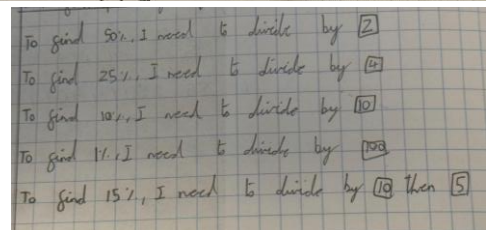 To find 50%, I need to divide by 2
To find 25%, I need to divide by 4
To find 10%, I need to divide by 10
To find 1%, I need to divide by 100
To find 15%, I need to divide by 10 then 5